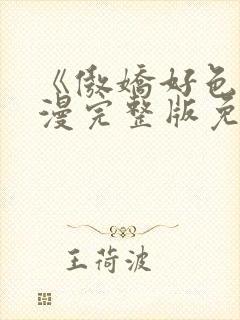 《傲嬌好色
漫完整版免
王荷波